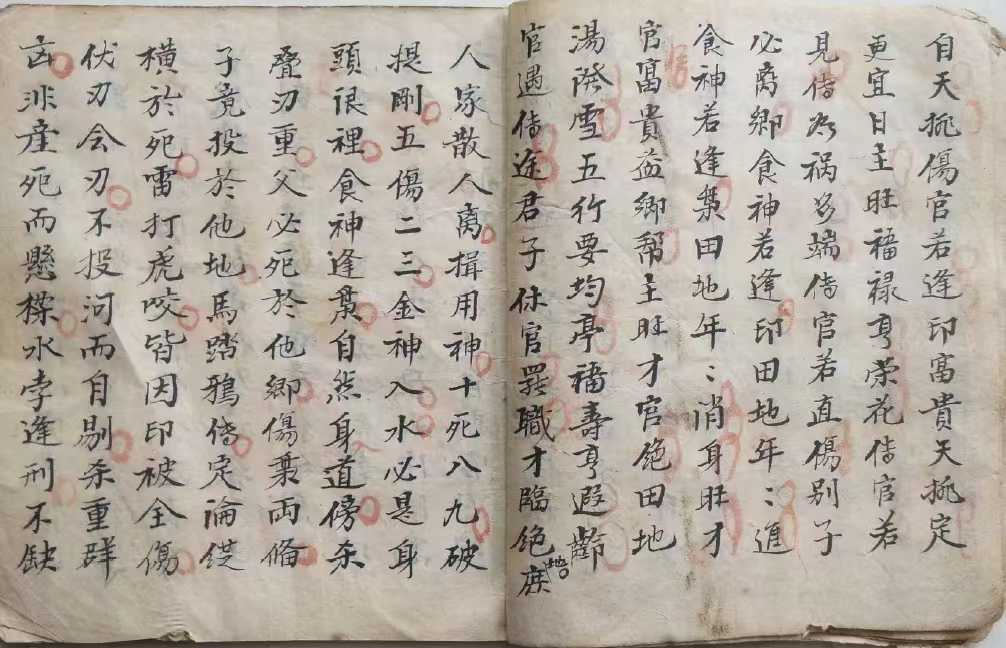 自天挑傷官若逢印富貴天挑定
更宜日主旺福禄亨荣花俻官若
見俻必祸多端俻官若直傷别子
必离鄉食神若逢印田地年〻進
食神若逢梟田地年〻消身旺才
官富貴益鄉帮主旺才官绝田地
湯潑雪五行要均亭福壽亨遐齡
官遇俻途君子休官罢職才臨绝庻地
人家散人离揖用神十死八九破
提剛五傷二三金神入水必是身
頭很裡食神逢梟自然身道傍杀
叠刃重父必死於他鄉傷梟両俻
子竟投於他地馬踏鴉俻定論
横於死雷打虎咬皆因印被全傷
伏刃会刃不投河而自剔杀重群
凶非産死而懸樑水孛逢刑不缺